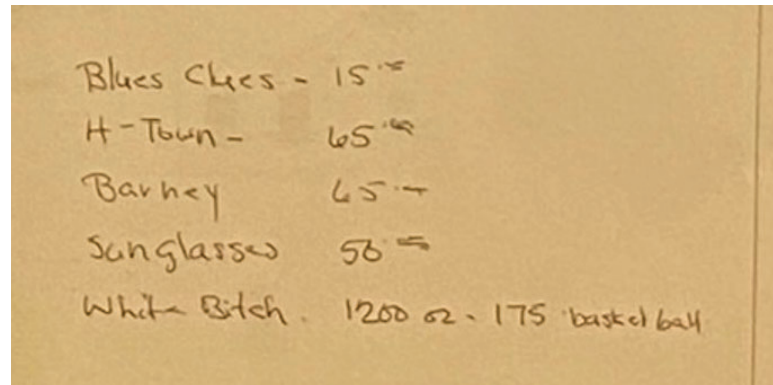 Blues Clues - 15.00
H-Town - 65.00
Barney 65.00
Sunglasses 50.00
White Bitch. 1200 oz. 175 basketball